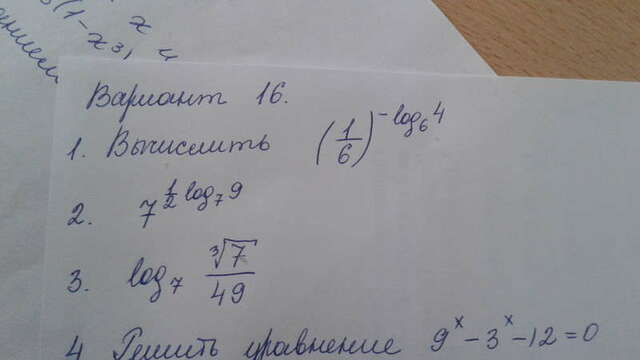 (1-x³, x
Вариант 16.
1. Вычислить (1/6)^(-log₆4)
2. 7^(1/2 log₇9)
3. log₇ ∛7/49
4 Решить уравнение 9ˣ-3ˣ-12=0